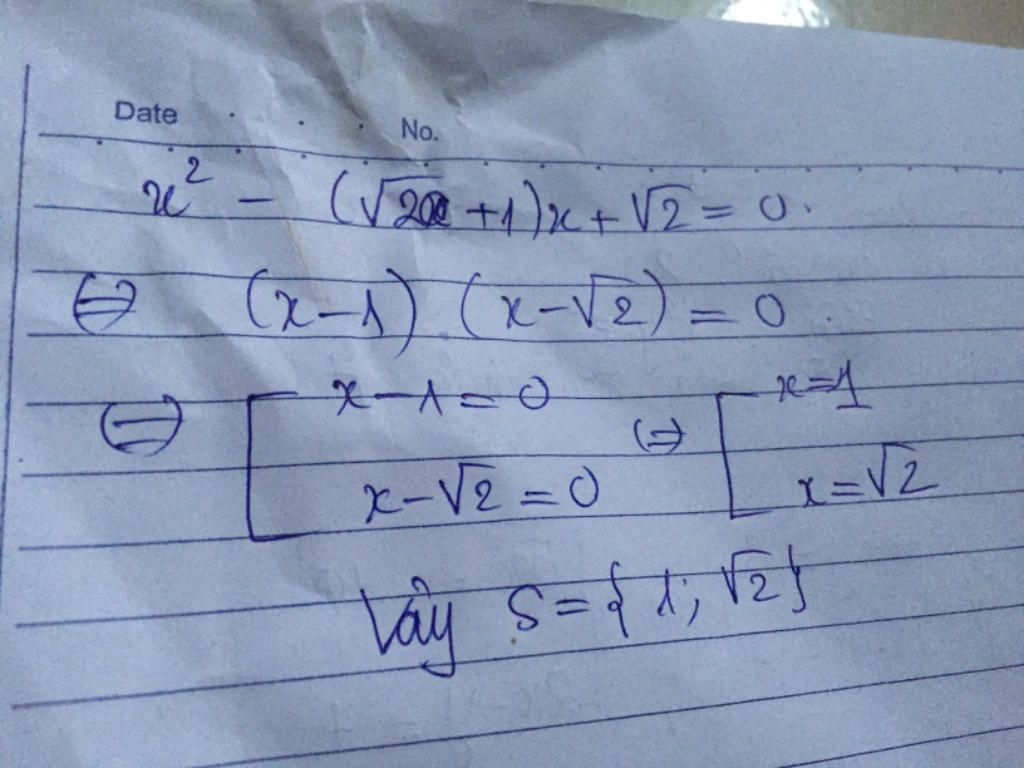 Date No.
x² - (√2 +1)x + √2 = 0.
⇔ (x-1) (x-√2) = 0.
⇔ [ x-1 = 0 ⇔ [ x=1
x-√2 = 0 x=√2
Vậy S = { 1; √2}